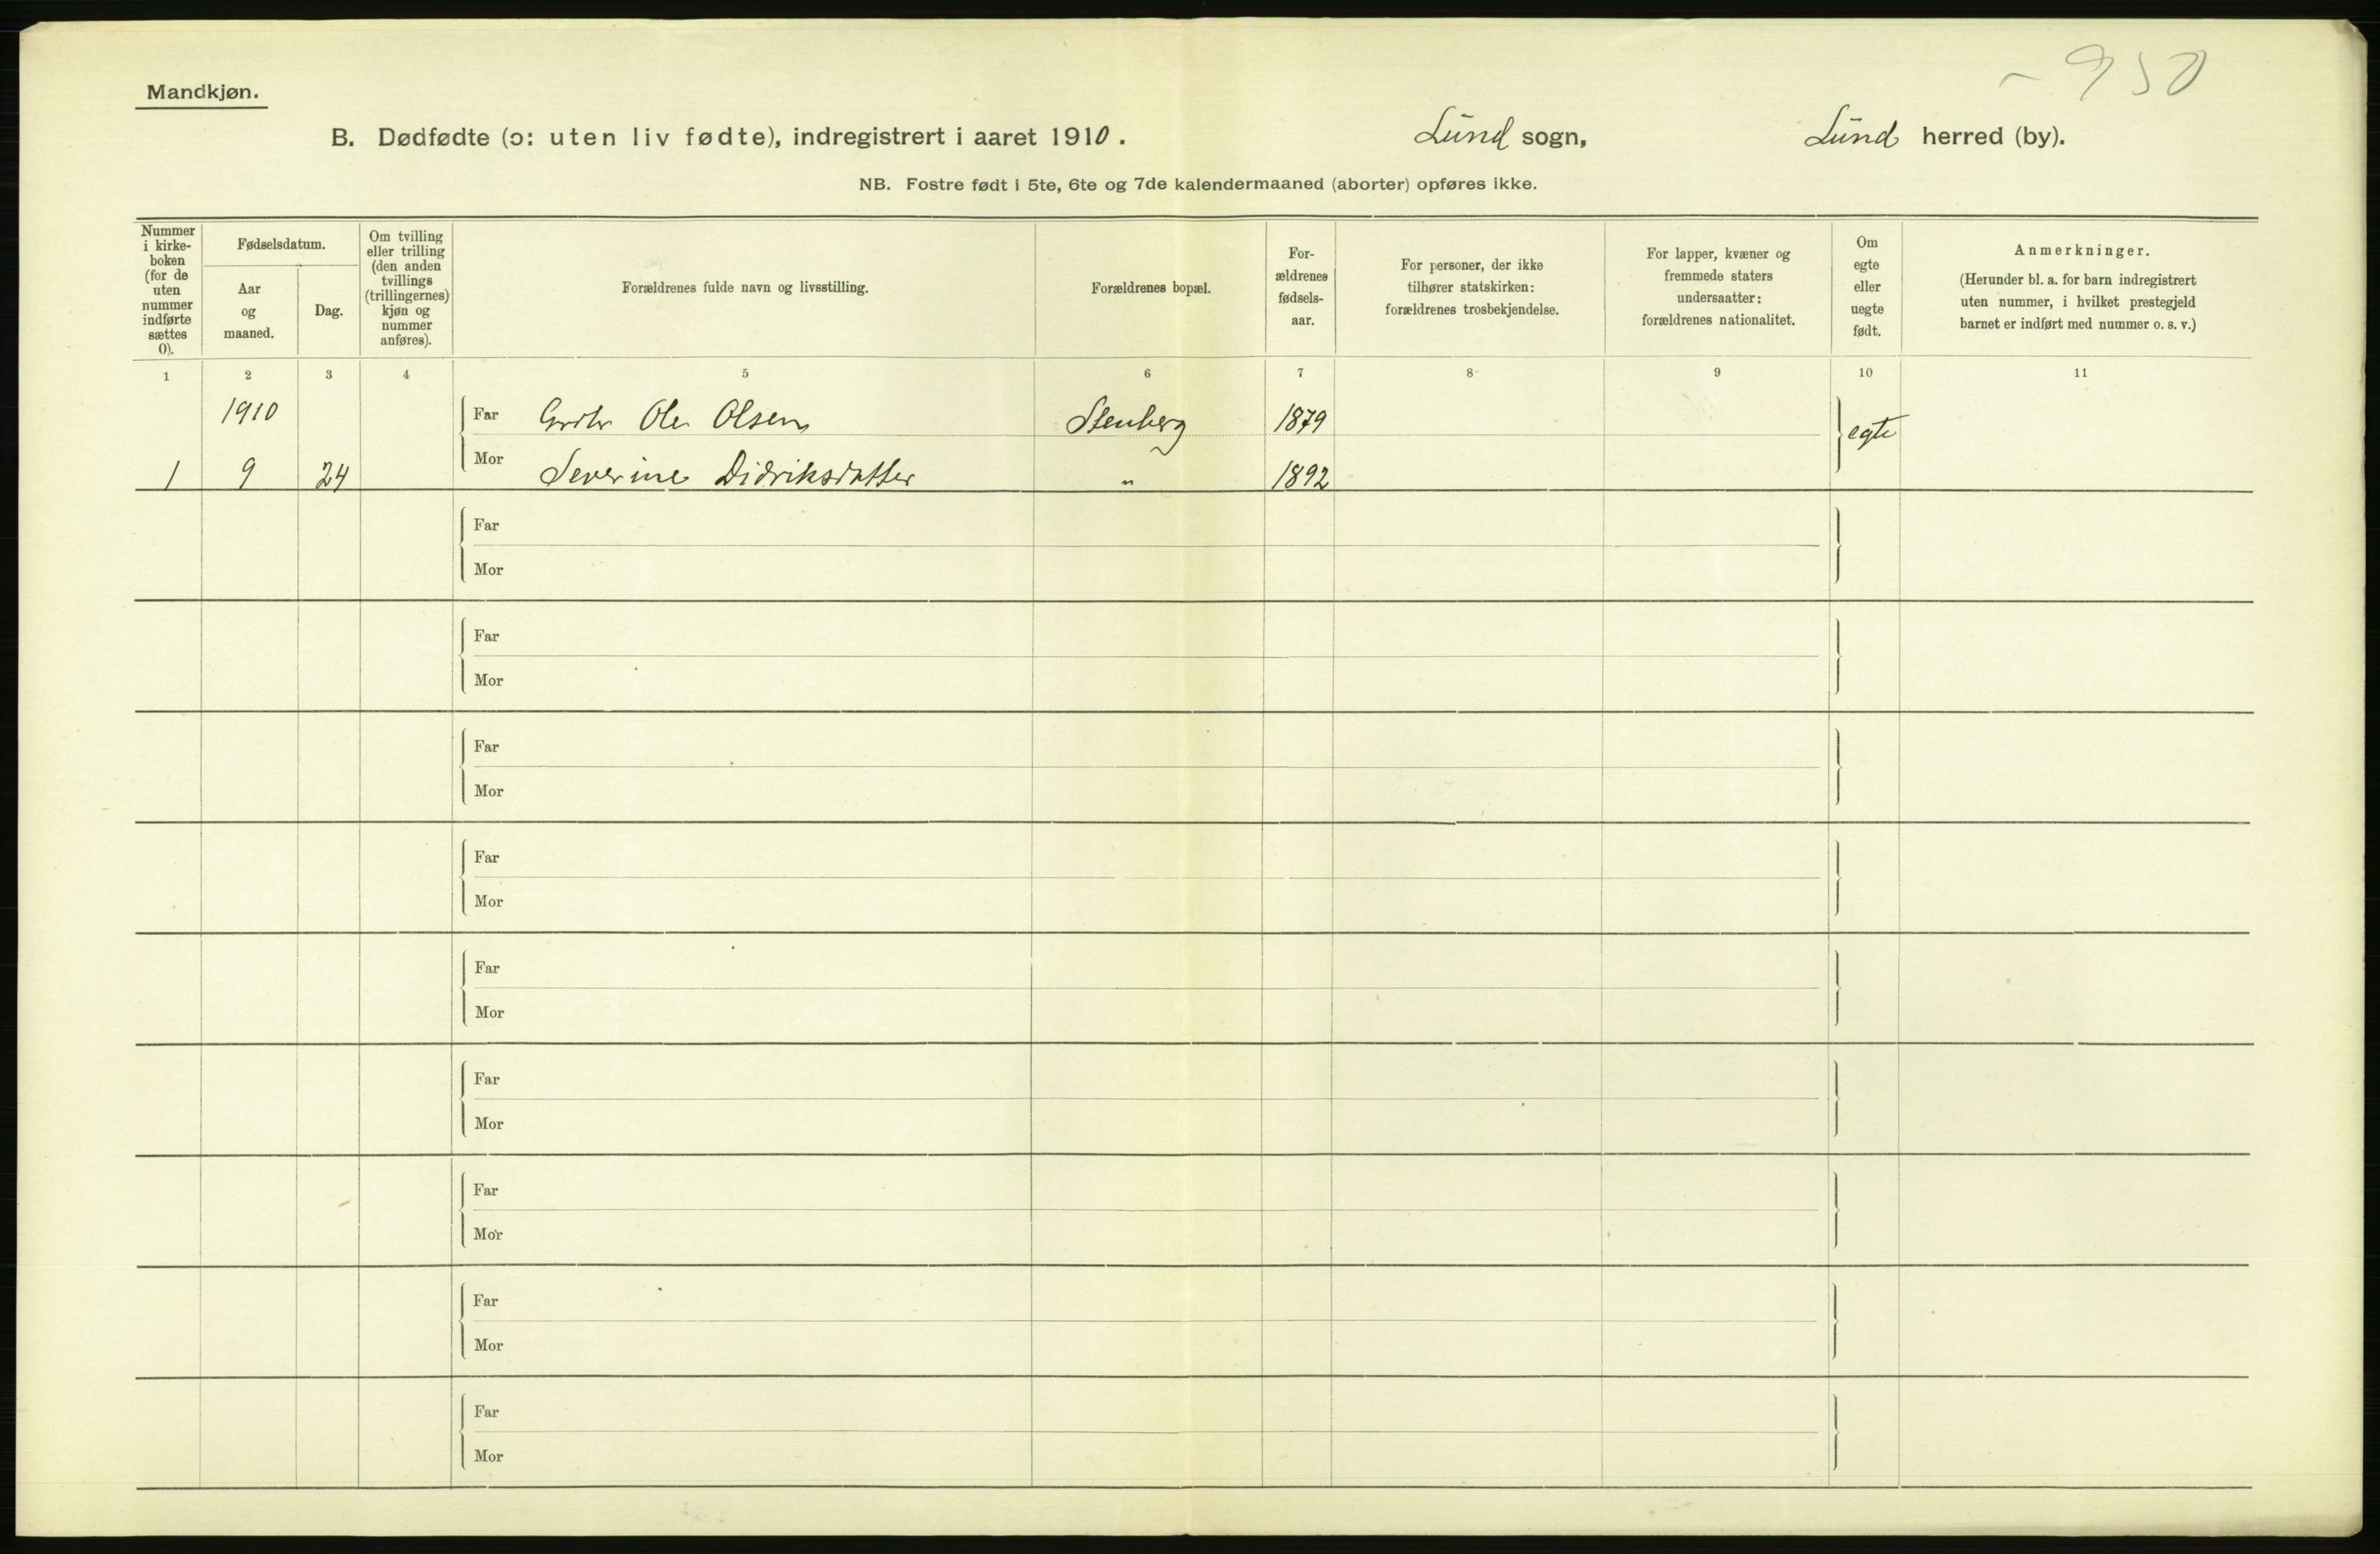 - 950
Mandkjøn.
B. Dødfødte (ɔ: uten liv fødte), indregistrert i aaret 1910. Lund sogn, Lund herred (by).
NB. Fostre født i 5te, 6te og 7de kalendermaaned (aborter) opføres ikke.
Nummer i kirke- boken (for de uten nummer indførte sættes 0).
Fødselsdatum.
Aar og maaned.
Dag.
Om tvilling eller trilling (den anden tvillings (trillingernes) kjøn og nummer anføres).
Forældrenes fulde navn og livsstilling.
Forældrenes bopæl.
For- ældrenes fødsels- aar.
For personer, der ikke tilhører statskirken: forældrenes trosbekjendelse.
For lapper, kvæner og fremmede staters undersaatter: forældrenes nationalitet.
Om egte eller uegte født.
Anmerkninger.
(Herunder bl. a. for barn indregistrert uten nummer, i hvilket prestegjeld barnet er indført med nummer o. s. v.)
1 2 3 4 5 6 7 8 9 10 11
1910 Far Ole Olsen Stenberg 1879 egte
1 9 24 Mor Severine Didriksdatter " 1892
Far
Mor
Far
Mor
Far
Mor
Far
Mor
Far
Mor
Far
Mor
Far
Mor
Far
Mor
Far
Mor